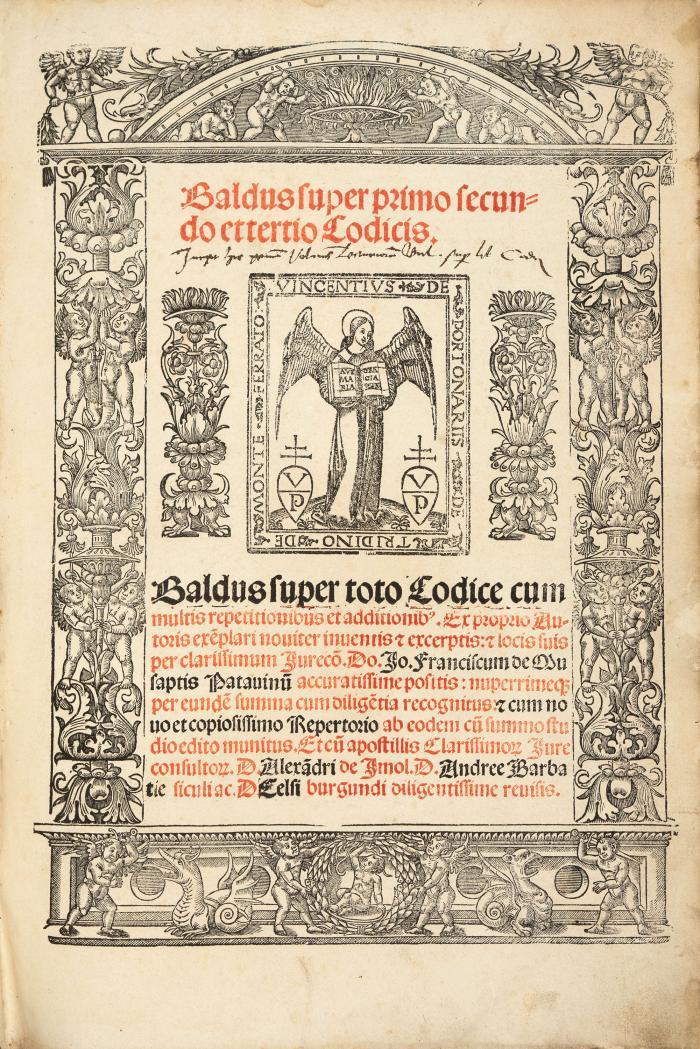 Baldus super primo secun=
do et tertio Codicis.
VINCENTIVS DE
PORTONARIIS DE
TRIDINO DE
MONTE FERRATO
AVE
MA
RIA
GRA
CIA
V P
V P
Baldus super toto Codice cum
multis repetitionibus et additionibꝰ. Ex proprio Au-
toris exẽplari noviter inuentis ⁊ excerptis: ⁊ locis suis
per clarissimum Jurecõ. Do. Jo. Franciscum de Mu
saptis Patauinũ accuratissime positis: nuperrimeqꝫ
per eundẽ summa cum diligẽtia recognitus: ⁊ cum no
uo et copiosissimo Repertorio ab eodem cũ summo stu
dio edito munitus. Et cũ apostillis Clarissimoꝝ Jure
consultoꝝ. D. Alexãdri de Imol. D. Andree Barba
tie siculi ac. D Celsi burgundi diligentissime reuisis.